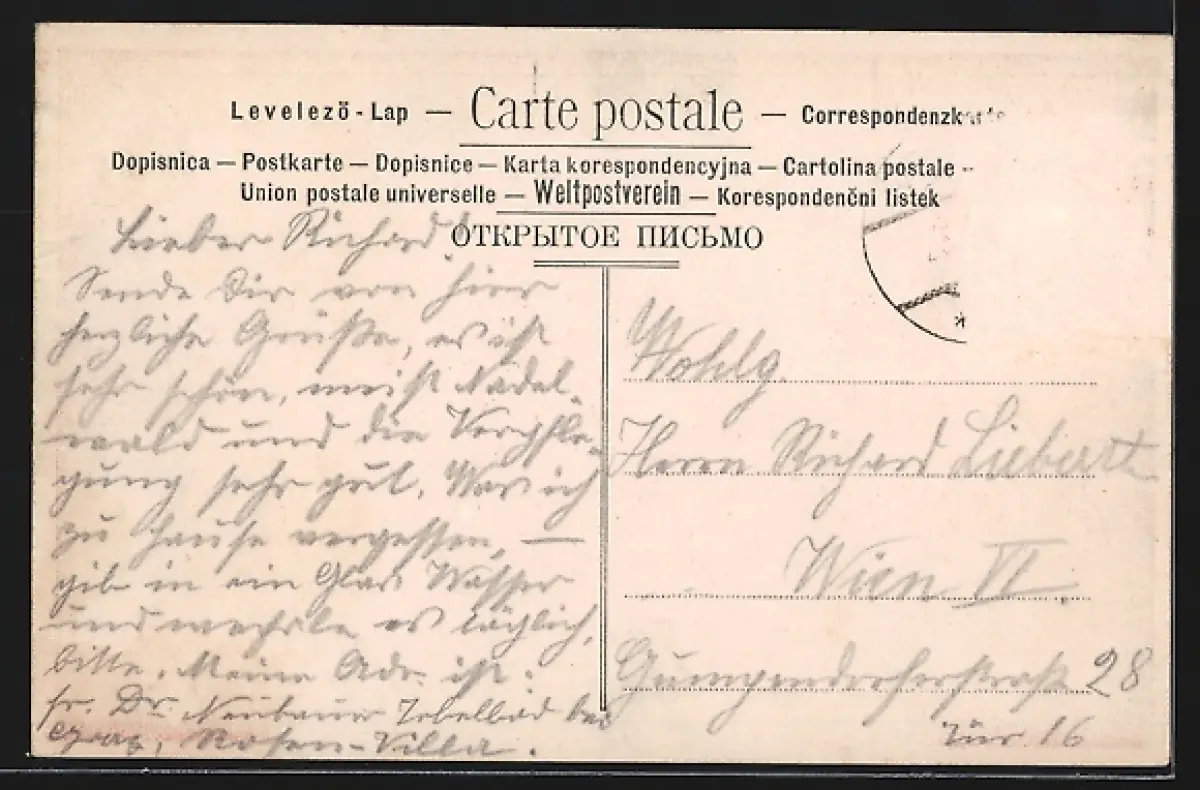 Levelező-Lap — Carte postale — Correspondenzkarte
Dopisnica — Postkarte — Dopisnice — Karta korespondencyjna — Cartolina postale -
Union postale universelle — Weltpostverein — Korespondenčni listek
ОТКРЫТОЕ ПИСЬМО
Lieber Richard!
Sende Dir von hier
herzliche Grüße, es ist
sehr schön, meist Nadel-
wald und die Verpfle-
gung sehr gut. Was ich
zu Hause vergessen, —
gib in ein Glas Wasser
und wechsle es täglich,
bitte. Meine Adr. ist:
fr. Dr. Neubauer Tobelbad bei
Graz, Rosen-Villa.
Wohlg.
Herrn Richard Liebert
Wien VI.
Gumpendorferstraße 28
Tür 16